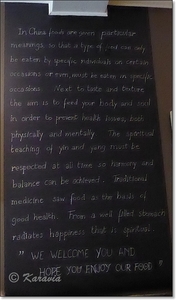 In China foods are given particular
meanings, so that a type of food can only
be eaten by specific individuals on certain
occasions or even must be eaten on specific
occasions. Next to taste and texture
the aim is to feed your body and soul
in order to prevent health issues, both
physically and mentally. The spiritual
teaching of yin and yang must be
respected at all times so harmony and
balance can be achieved. Traditional
medicine saw food as the basis of
good health. From a well filled stomach
radiates happiness that is spiritual.
" WE WELCOME YOU AND
HOPE YOU ENJOY OUR FOOD "
© Karavia